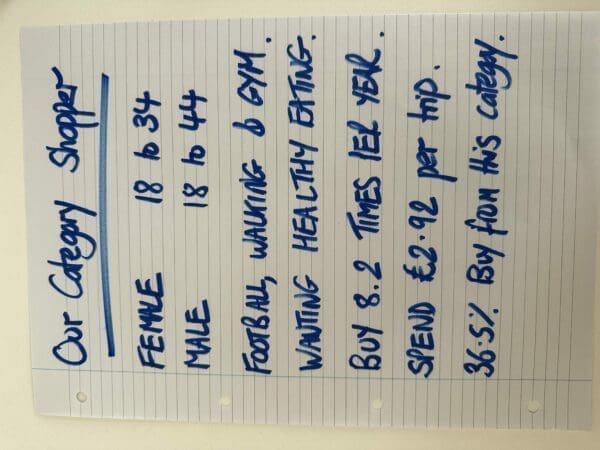 Our Category Shopper
FEMALE 18 to 34
MALE 18 to 44
FOOTBALL, WALKING & GYM.
WANTING HEALTHY EATING.
BUY 8.2 TIMES PER YEAR.
SPEND £2.92 per trip.
36.5% Buy from this category.